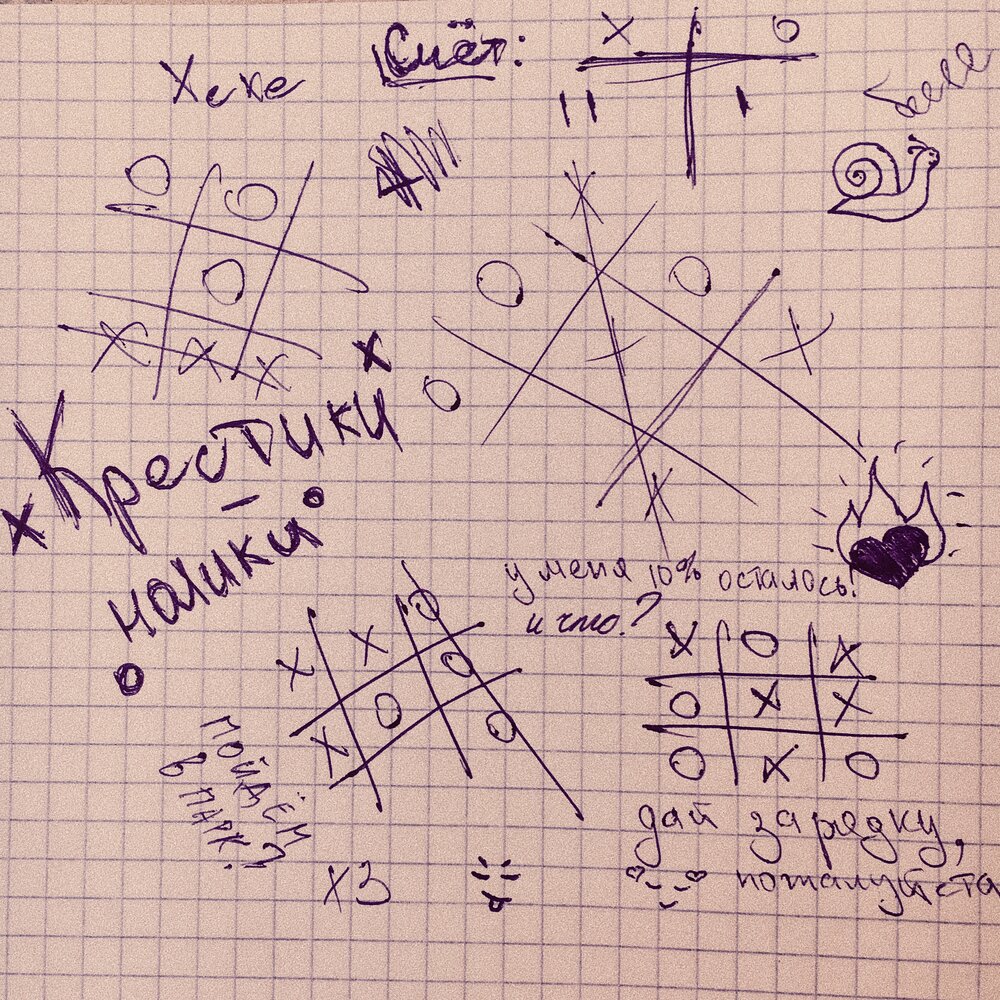 Хехе
Счёт:
X O
II I
Бееее
Крестики
-
нолики
у меня 10% осталось!
и что?
пойдём
в парк?
хз
дай зарядку,
пожалуйста